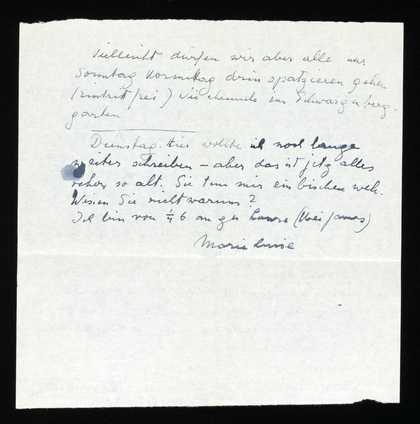 Vielleicht dürfen wir aber alle nur
Sonntag Vormittag drin spatzieren gehen
(Eintritt frei) wie ehemals im Schwarzenberg-
garten
Dienstag. Hier wollte ich noch lange
weiter schreiben – aber das ist jetz alles
schon so alt. Sie tun mir ein bischen weh.
Wissen Sie nicht warum?
Ich bin von ¼ 6 an zu Hause (bei James)
Marie Luise